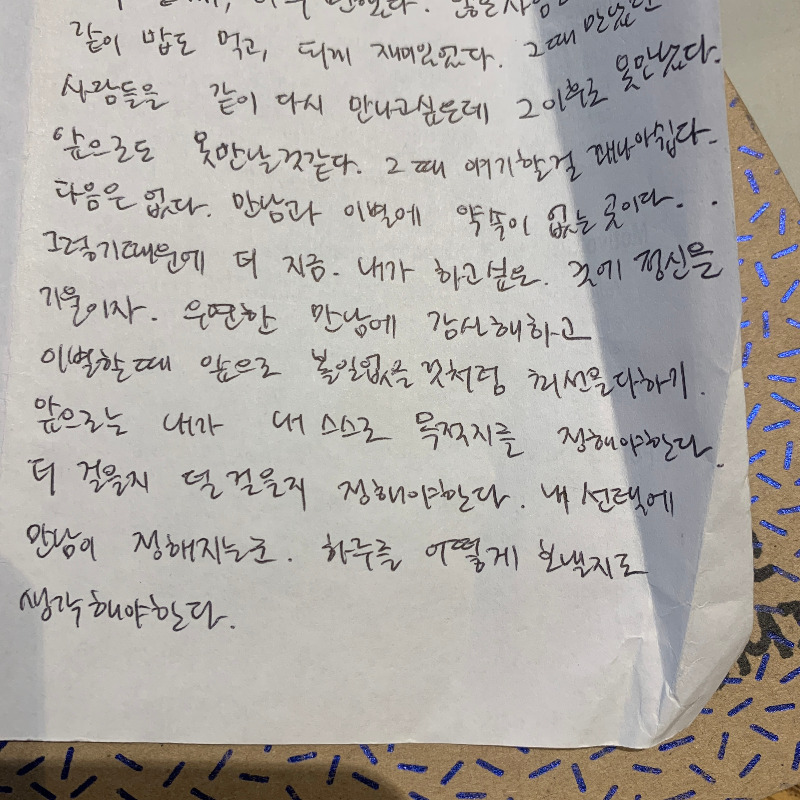 같이 밥도 먹고, 되게 재미있었다. 그때 만났던
사람들을 같이 다시 만나고싶은데 그이후로 못만났다.
앞으로도 못만날것같다. 그때 얘기할걸 꽤나아쉽다.
다음은 없다. 만남과 이별에 약속이 없는 곳이다..
그렇기때문에 더 지금. 내가 하고싶은. 것에 정신을
기울이자. 우연한 만남에 감사해하고
이별할때 앞으로 볼일없을 것처럼 최선을다하기.
앞으로는 내가 내 스스로 목적지를 정해야한다.
더 걸을지 덜 걸을지 정해야한다. 내 선택에
만남이 정해지는곳. 하루를 어떻게 보낼지도
생각해야한다.